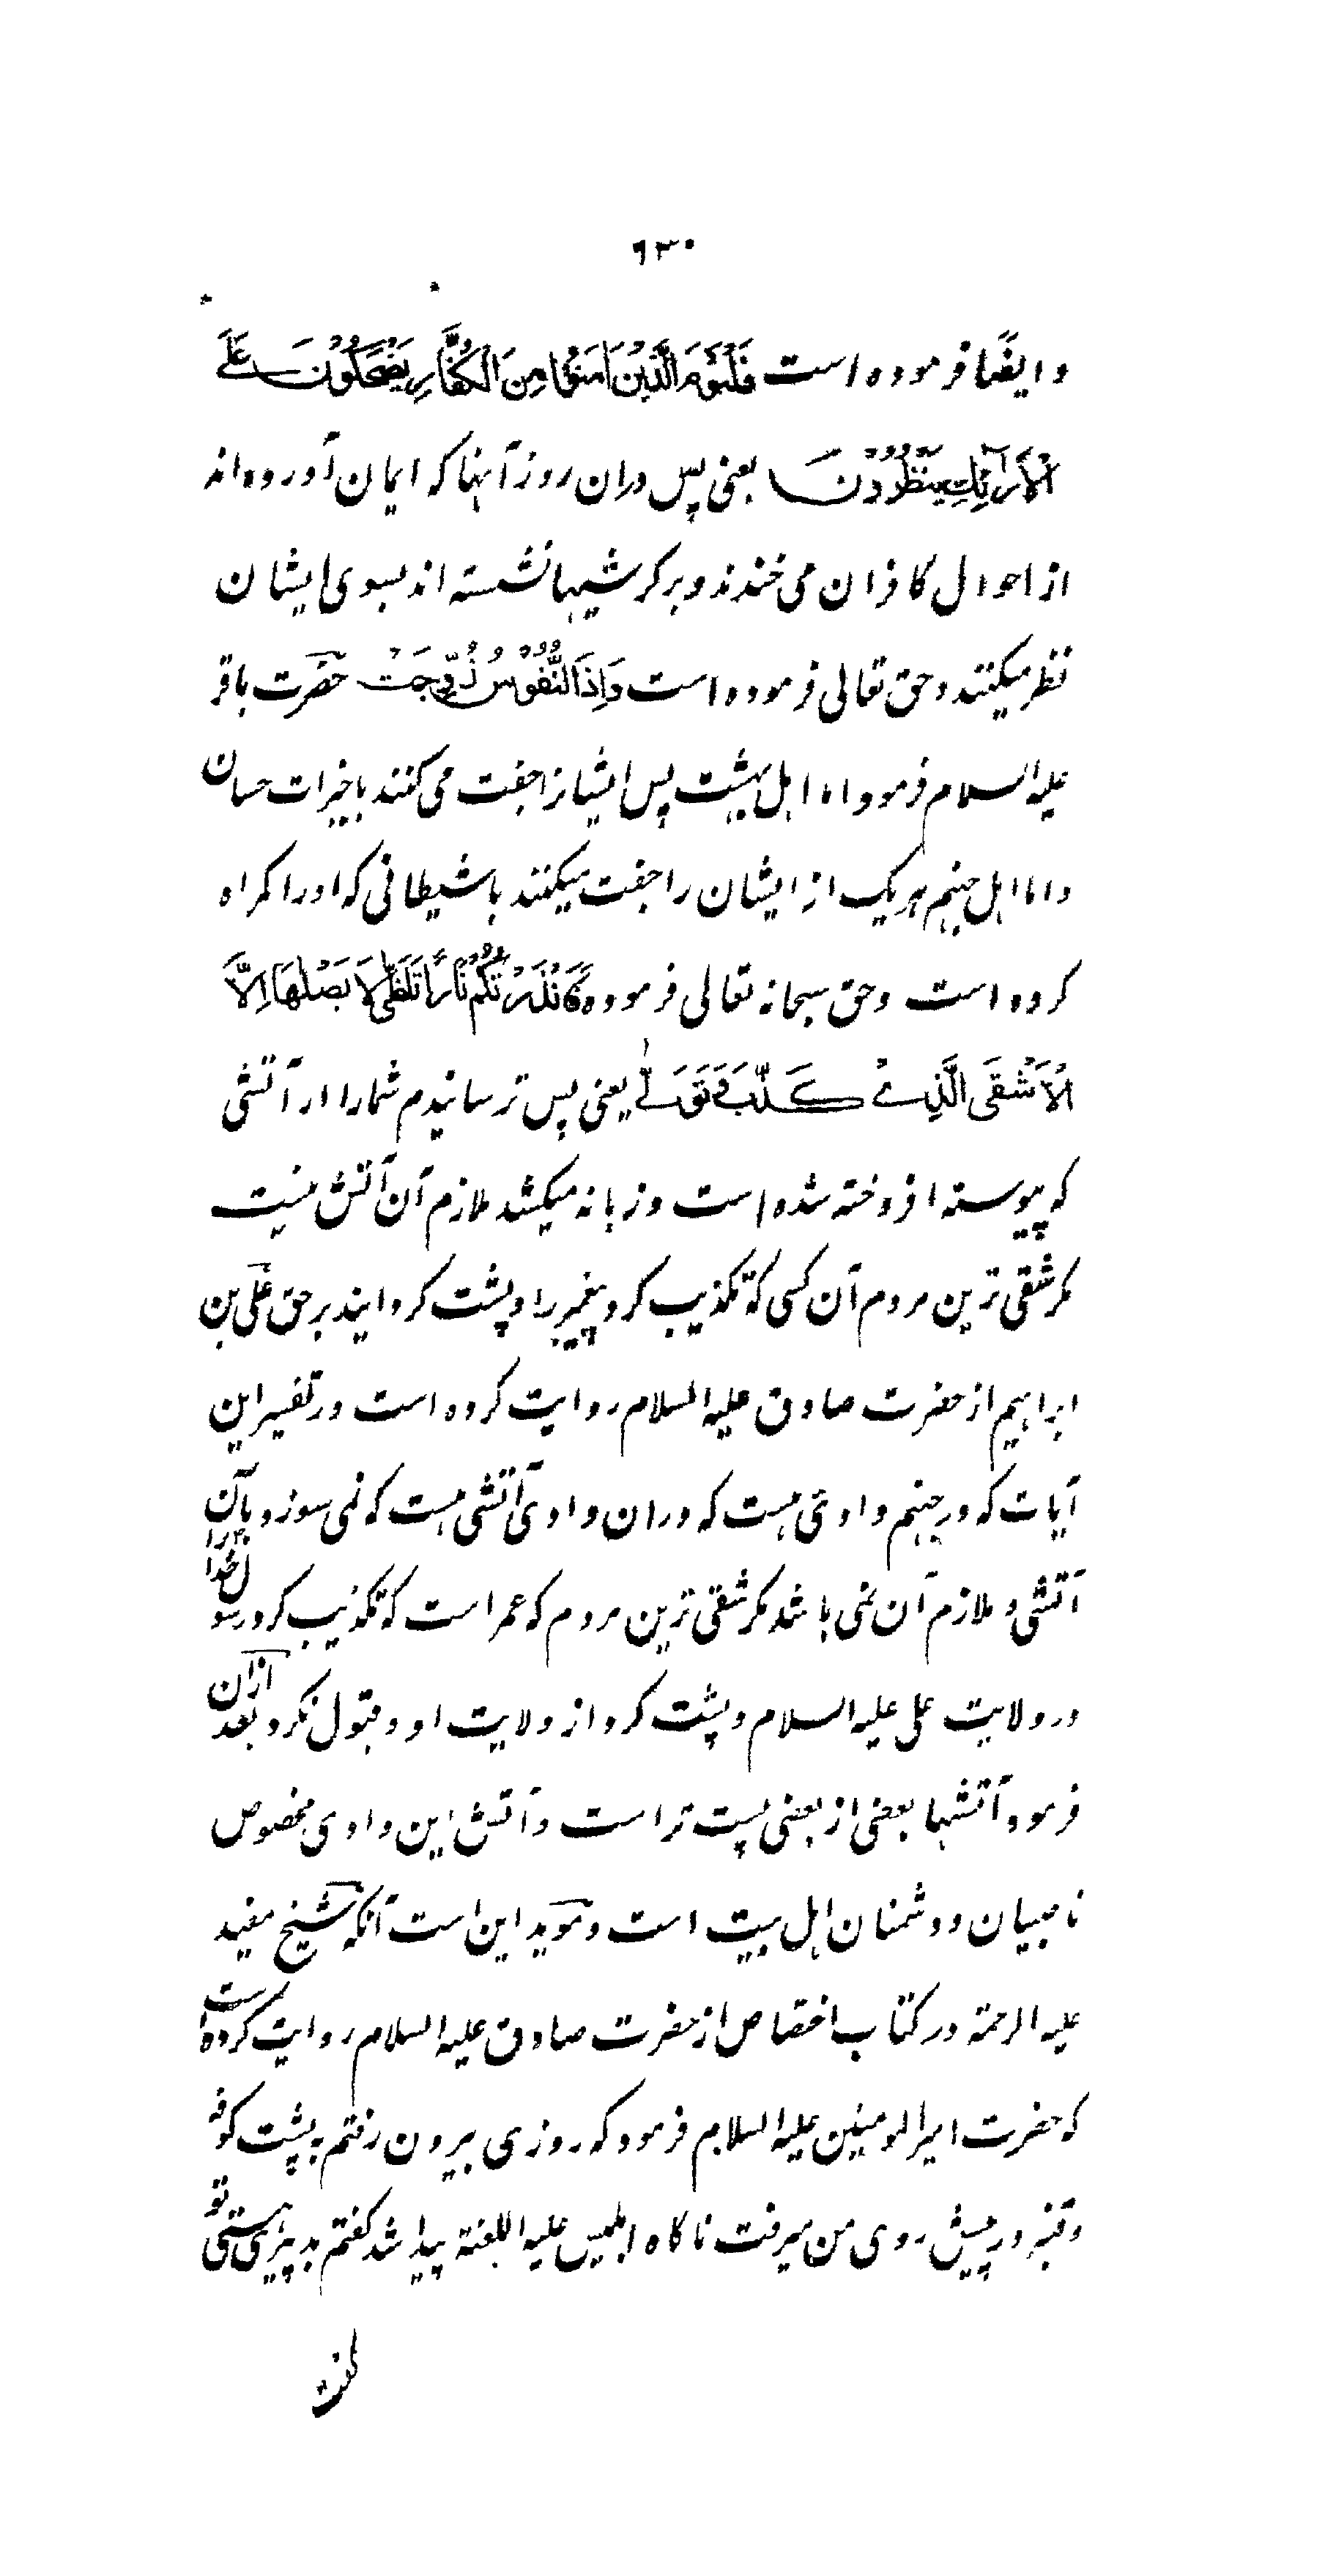 ٦٣٠
و ایضًا فرموده است فَالْیَوْمَ الَّذِیْنَ اٰمَنُوْا مِنَ الْکُفَّارِ یَضْحَکُوْنَ عَلَے
الْاَرَآئِكِ یَنْظُرُوْنَ یعنی پس دران روز آنها که ایمان آورده اند
از احوال کافران می خندند و بر کرسیها نشسته اند بسوی ایشان
نظر میکنند و حق تعالی فرموده است وَاِذَا النُّفُوْسُ زُوِّجَتْ حضرت باقر
علیه السلام فرمود اما اهل بهشت پس ایشانرا جفت می کنند با خیرات حسان
و اما اهل جهنم هر یک از ایشان را جفت میکنند با شیطانی که او را کمراه
کرده است و حق سبحانه تعالی فرموده فَاَنْذَرْتُکُمْ نَارًا تَلَظّٰی لَا یَصْلٰهَا اِلَّا
الْاَشْقَی الَّذِیْ کَذَّبَ وَتَوَلّٰے یعنی پس ترسانیدم شما را از آتشی
که پیوسته افروخته شده است و زبانه میکشد ملازم آن آتش نیست
مکر شقی ترین مردم آن کسی که تکذیب کرد پیغمبر را و پشت کردانید بر حق علی بن
ابراهیم از حضرت صادق علیه السلام روایت کرده است در تفسیر این
آیات که در جهنم وادئ هست که دران وادی آتشی هست که نمی سوزد بآن
آتشی و ملازم آن نمی باشد مکر شقی ترین مردم که عمر است که تکذیب کرد رسول خدا را
در ولایت علی علیه السلام و پشت کرد از ولایت او و قبول نکرد بعد ازان
فرمود آتشها بعضی از بعضی پست تر است و آتش این وادی مخصوص
ناصبیان و دشمنان اهل بیت است و موید این است آنکه شیخ مفید
علیه الرحمة در کتاب اختصاص از حضرت صادق علیه السلام روایت کرده است
که حضرت امیر المومنین علیه السلام فرمود که روزی بیرون رفتم به پشت کوفه
و قنبر در پیش روی من میرفت ناکاه ابلیس علیه اللعنة پیدا شد کفتم بد پیری هستی تو
کفت